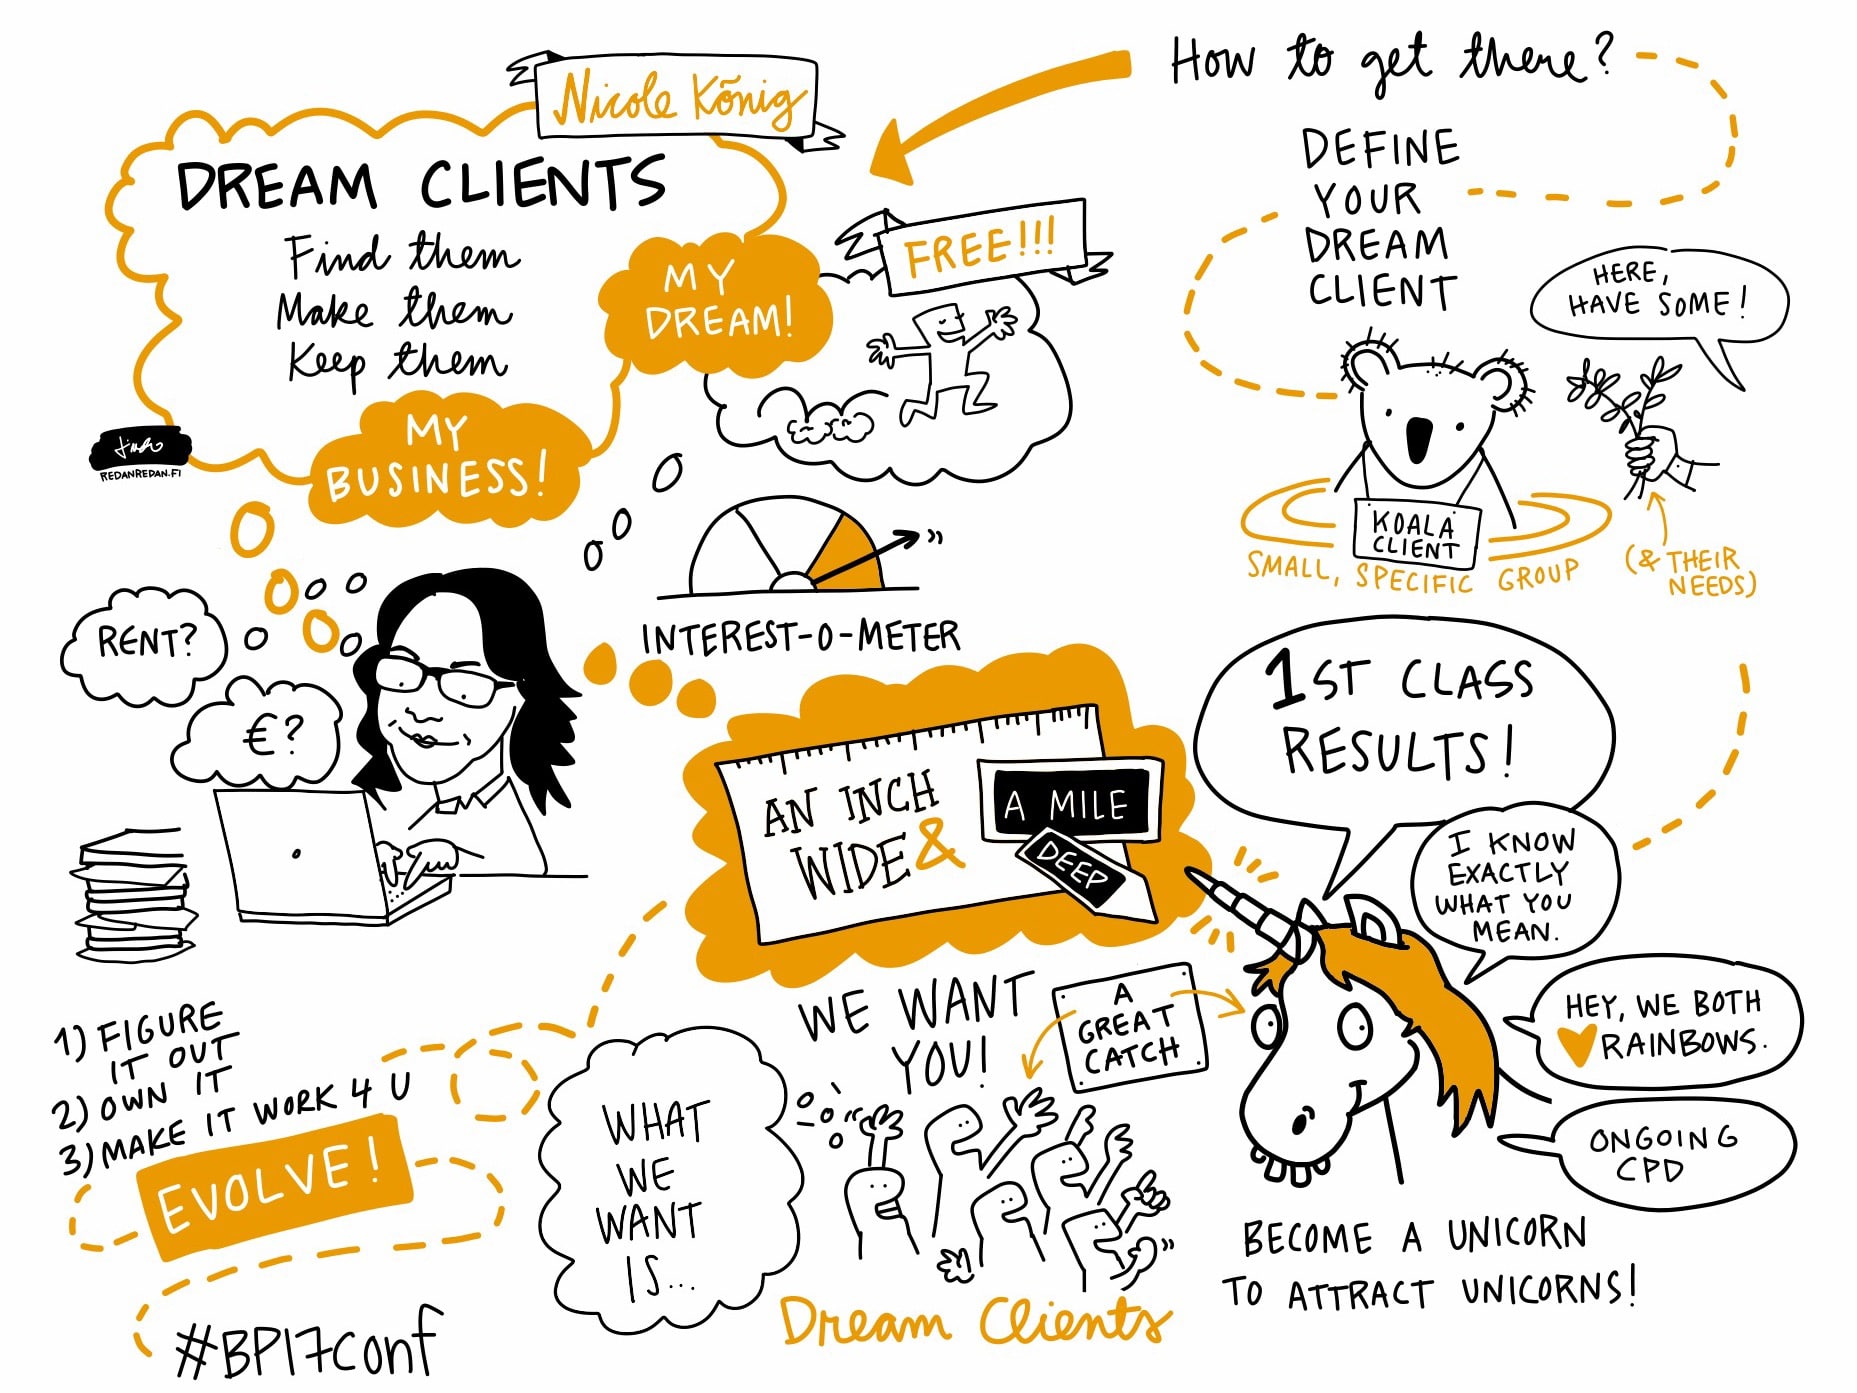 Nicole König
DREAM CLIENTS
Find them
Make them
Keep them
MY
DREAM!
FREE!!!
MY
BUSINESS!
REDANREDAN.FI
RENT?
€?
INTEREST-O-METER
How to get there?
DEFINE
YOUR
DREAM
CLIENT
HERE,
HAVE SOME!
KOALA
CLIENT
SMALL, SPECIFIC GROUP
(& THEIR
NEEDS)
AN INCH
WIDE &
A MILE
DEEP
1ST CLASS
RESULTS!
I KNOW
EXACTLY
WHAT YOU
MEAN.
HEY, WE BOTH
RAINBOWS.
ONGOING
CPD
BECOME A UNICORN
TO ATTRACT UNICORNS!
WE WANT
YOU!
A
GREAT
CATCH
WHAT
WE
WANT
IS...
Dream Clients
1) FIGURE
IT OUT
2) OWN IT
3) MAKE IT WORK 4 U
EVOLVE!
#BP17conf